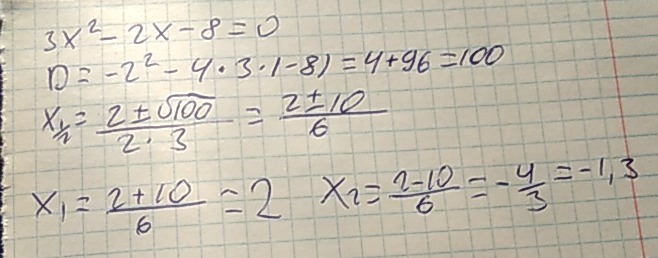 3x² - 2x - 8 = 0
D = -2² - 4 · 3 · (-8) = 4 + 96 = 100
x₁/₂ = (2 ± √100)/(2 · 3) = (2 ± 10)/6
x₁ = (2 + 10)/6 = 2    x₂ = (2 - 10)/6 = -4/3 = -1,3